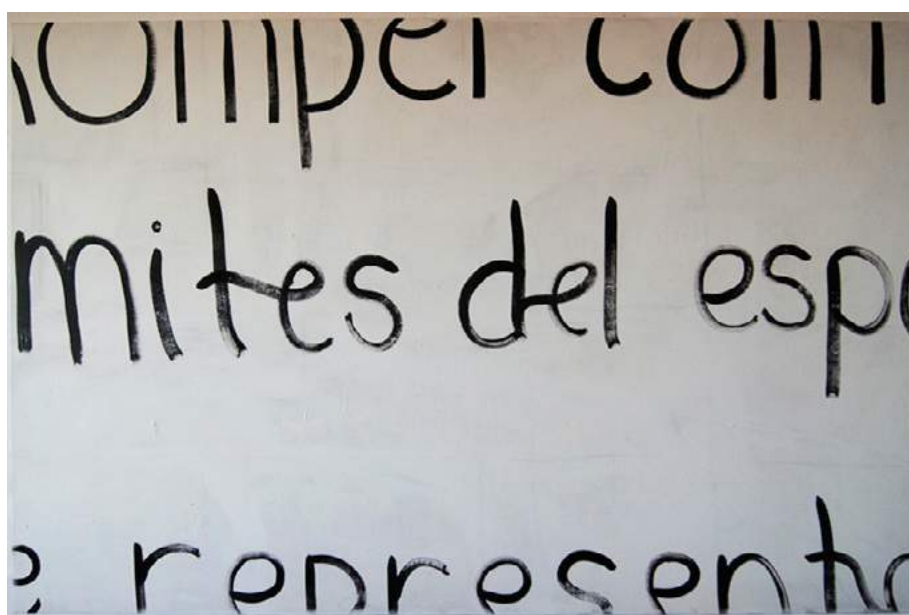 Romper con l
mites del espa
e representa